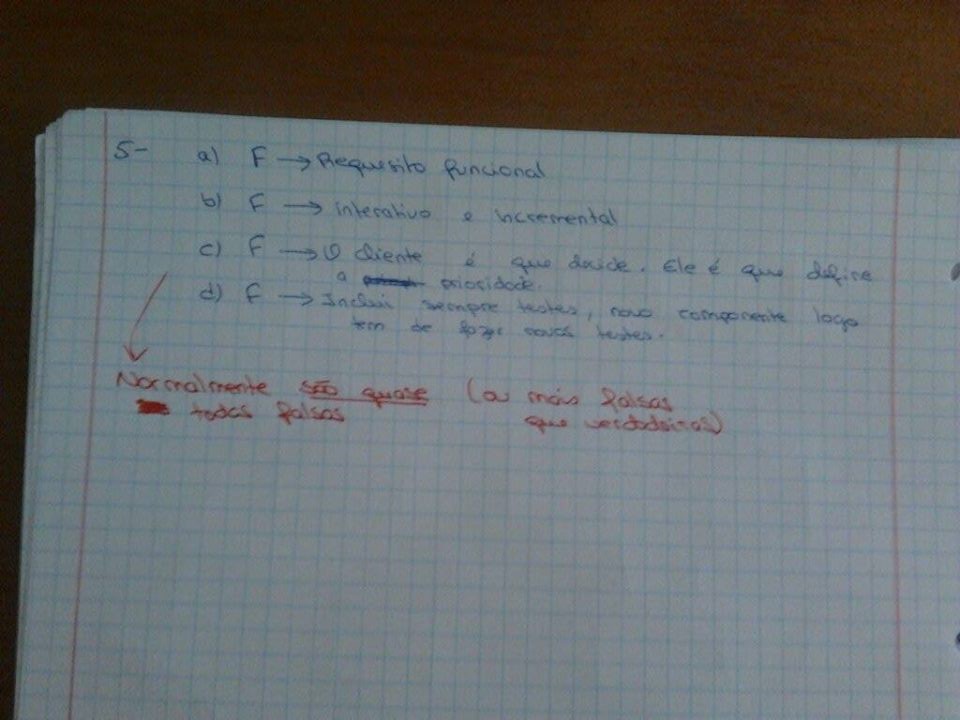 5- a) F → Requisito funcional
b) F → interativo e incremental
c) F → O cliente é que decide. Ele é que define
a prioridade.
d) F → Inclui sempre testes, novo componente logo
tem de fazer novos testes.
Normalmente são quase (ou mais falsas
todas falsas que verdadeiras)